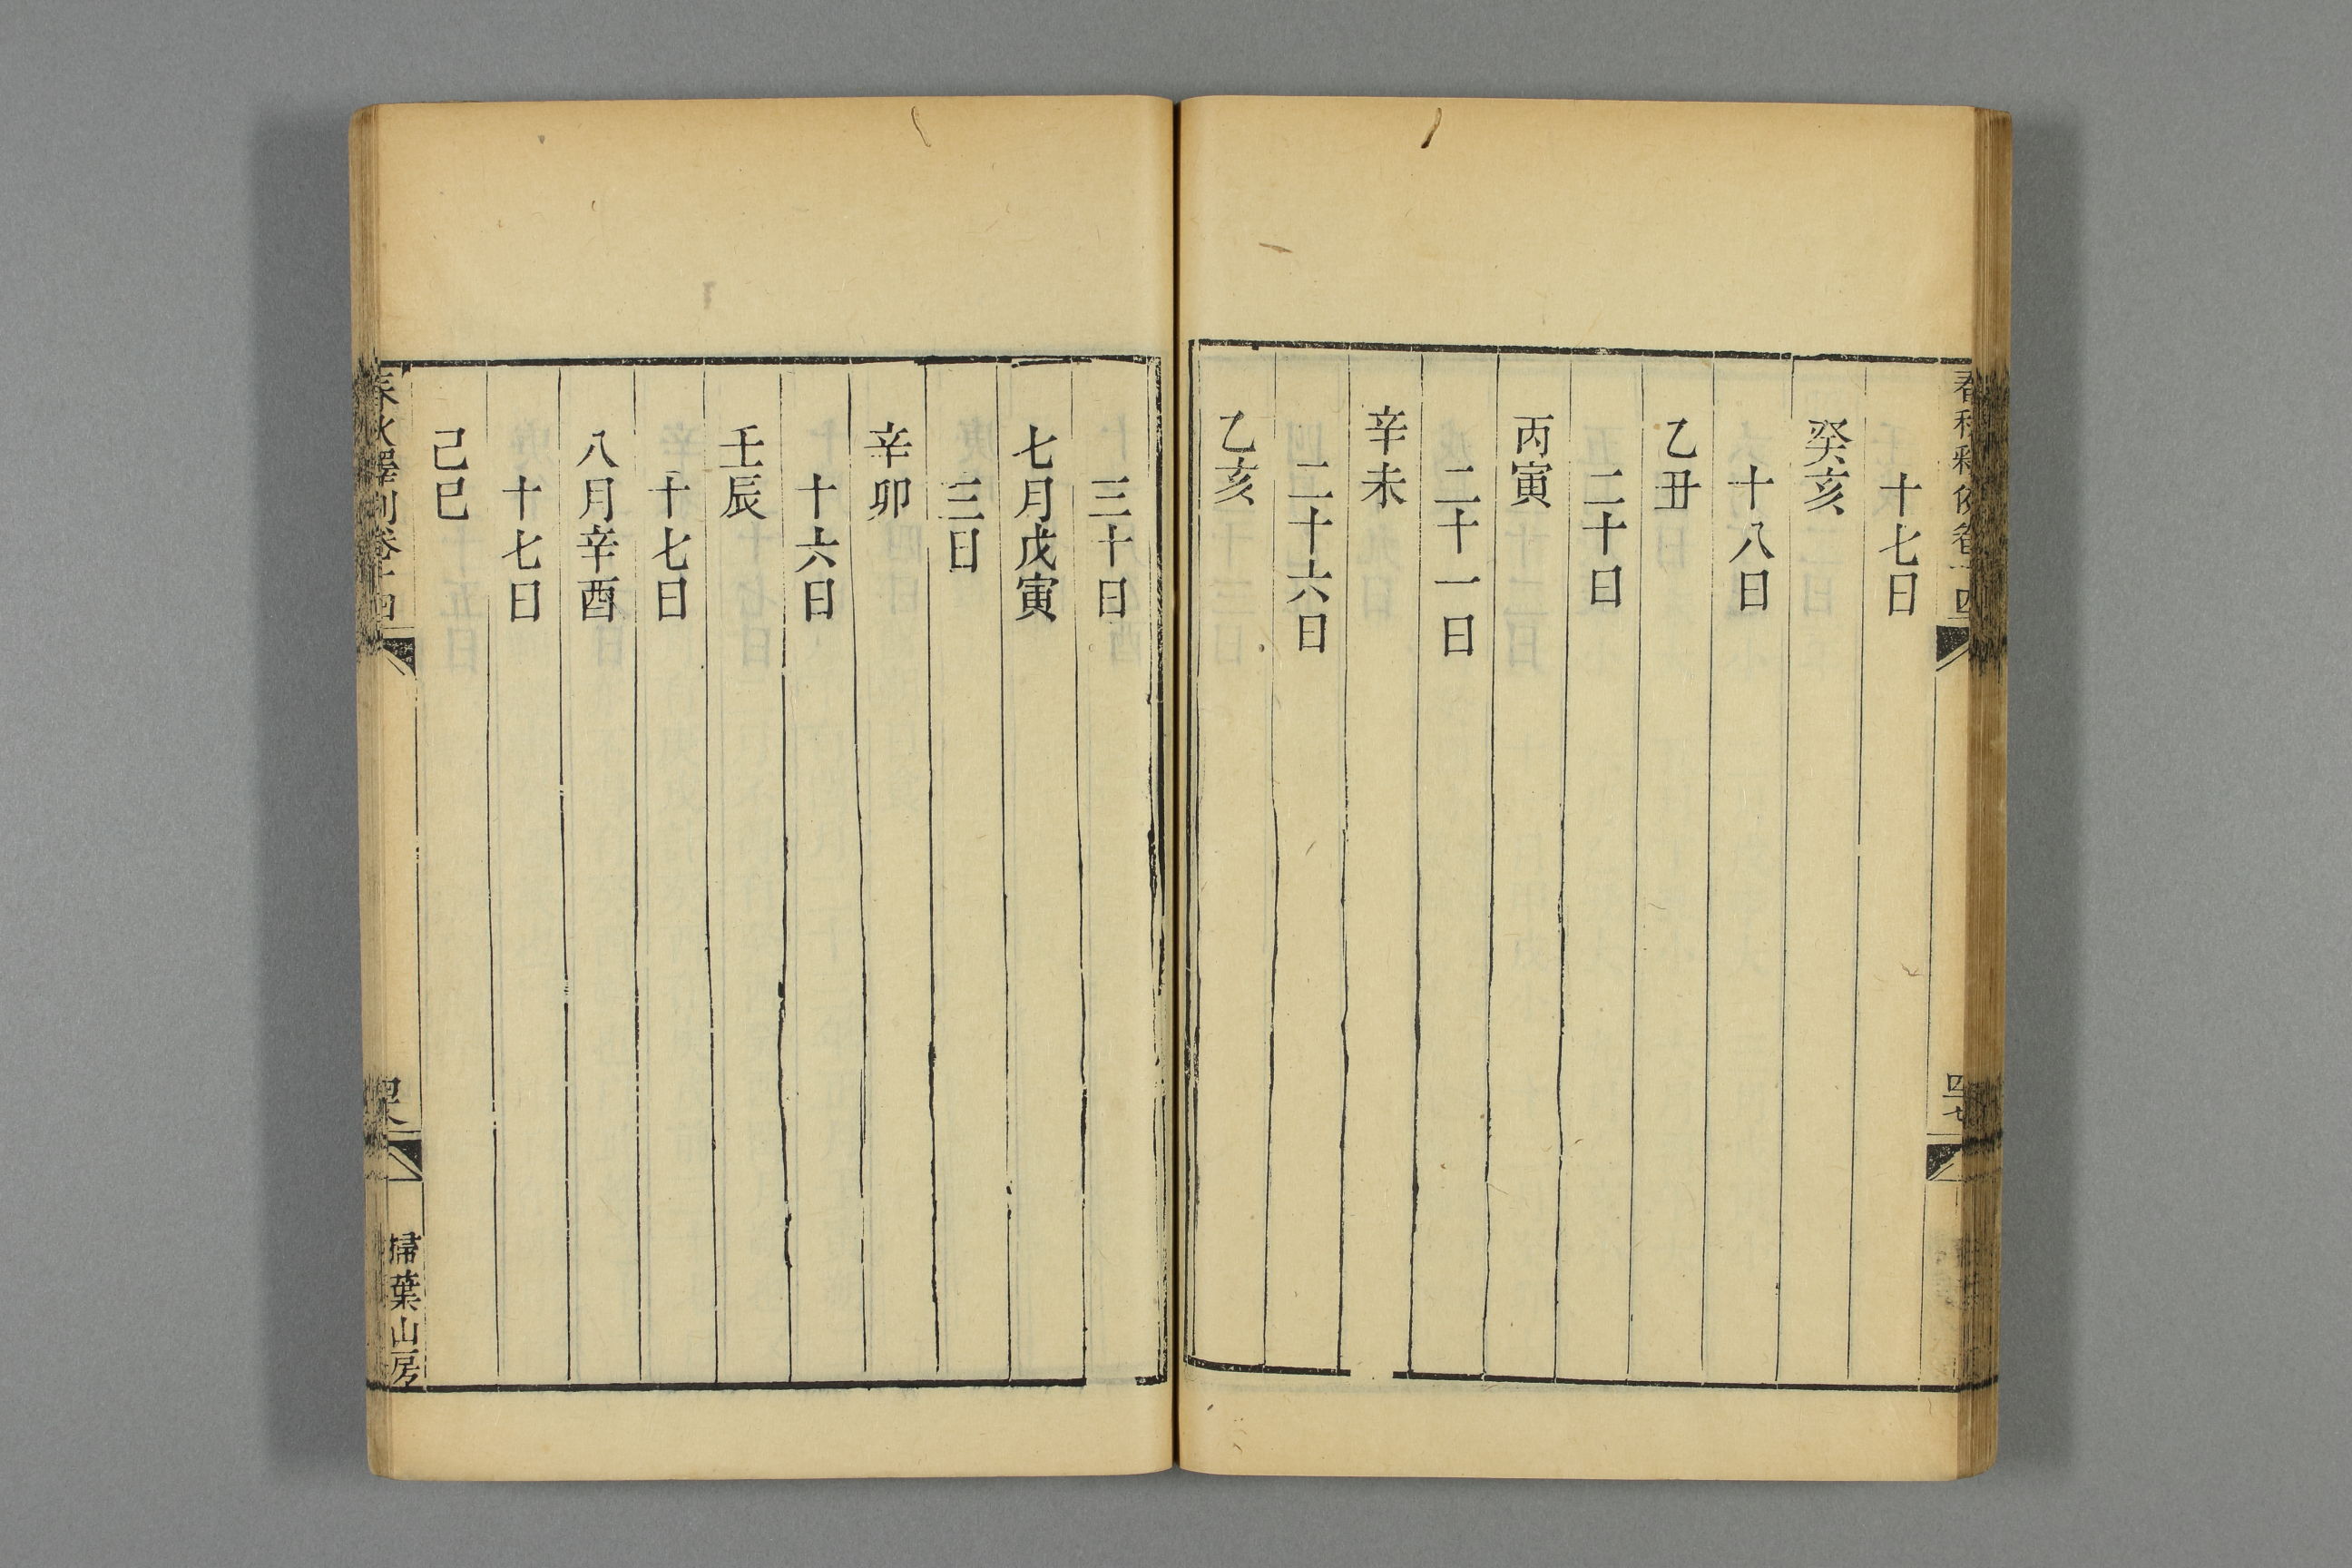 春秋釋例卷十四
四十七
十七日
癸亥
十八日
乙丑
二十日
丙寅
二十一日
辛未
二十六日
乙亥
三十日
七月戊寅
三日
辛卯
十六日
壬辰
十七日
八月辛酉
十七日
己巳
春秋釋例卷十四
掃葉山房